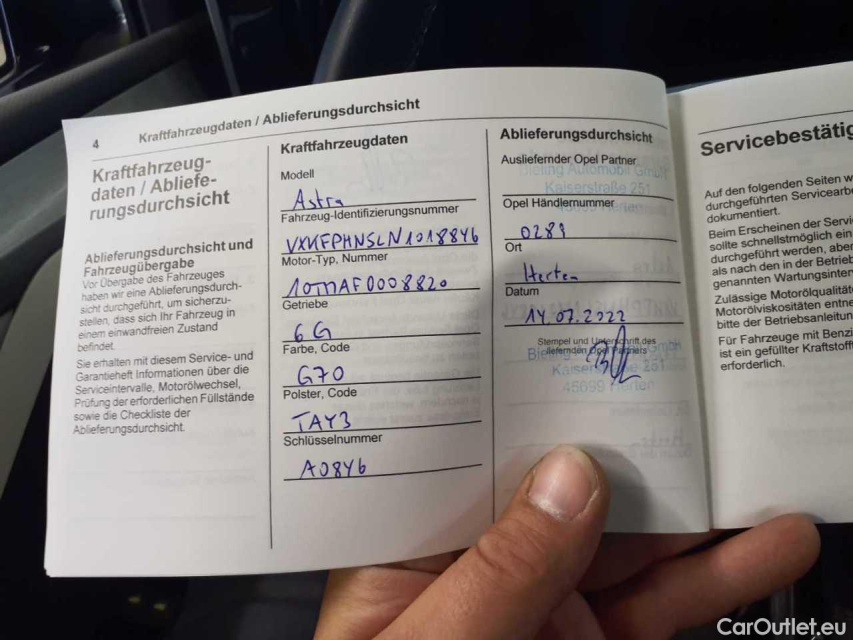 4
Kraftfahrzeugdaten / Ablieferungsdurchsicht
Kraftfahrzeug-
daten / Abliefe-
rungsdurchsicht
Ablieferungsdurchsicht und
Fahrzeugübergabe
Vor Übergabe des Fahrzeuges
haben wir eine Ablieferungsdurch-
sicht durchgeführt, um sicherzu-
stellen, dass sich Ihr Fahrzeug in
einem einwandfreien Zustand
befindet.
Sie erhalten mit diesem Service- und
Garantieheft Informationen über die
Serviceintervalle, Motorölwechsel,
Prüfung der erforderlichen Füllstände
sowie die Checkliste der
Ablieferungsdurchsicht.
Kraftfahrzeugdaten
Modell
Astra
Fahrzeug-Identifizierungsnummer
VXKFPHNSLN1018846
Motor-Typ, Nummer
10MAF0008820
Getriebe
6G
Farbe, Code
G70
Polster, Code
TAY3
Schlüsselnummer
A0846
Ablieferungsdurchsicht
Ausliefernder Opel Partner
Bieling Automobil GmbH
Kaiserstraße 251
45699 Herten
Opel Händlernummer
0289
Ort
Herten
Datum
14.07.2022
Stempel und Unterschrift des
liefernden Opel Partners
Kaiser 251
45699 Herten
Servicebestätig
Auf den folgenden Seiten w
durchgeführten Servicearbe
dokumentiert.
Beim Erscheinen der Servi
sollte schnellstmöglich ein
durchgeführt werden, aber
als nach den in der Betrieb
genannten Wartungsinter
Zulässige Motorölqualität
Motorölviskositäten entne
bitte der Betriebsanleitun
Für Fahrzeuge mit Benzi
ist ein gefüllter Kraftstoff
erforderlich.
CarOutlet.eu